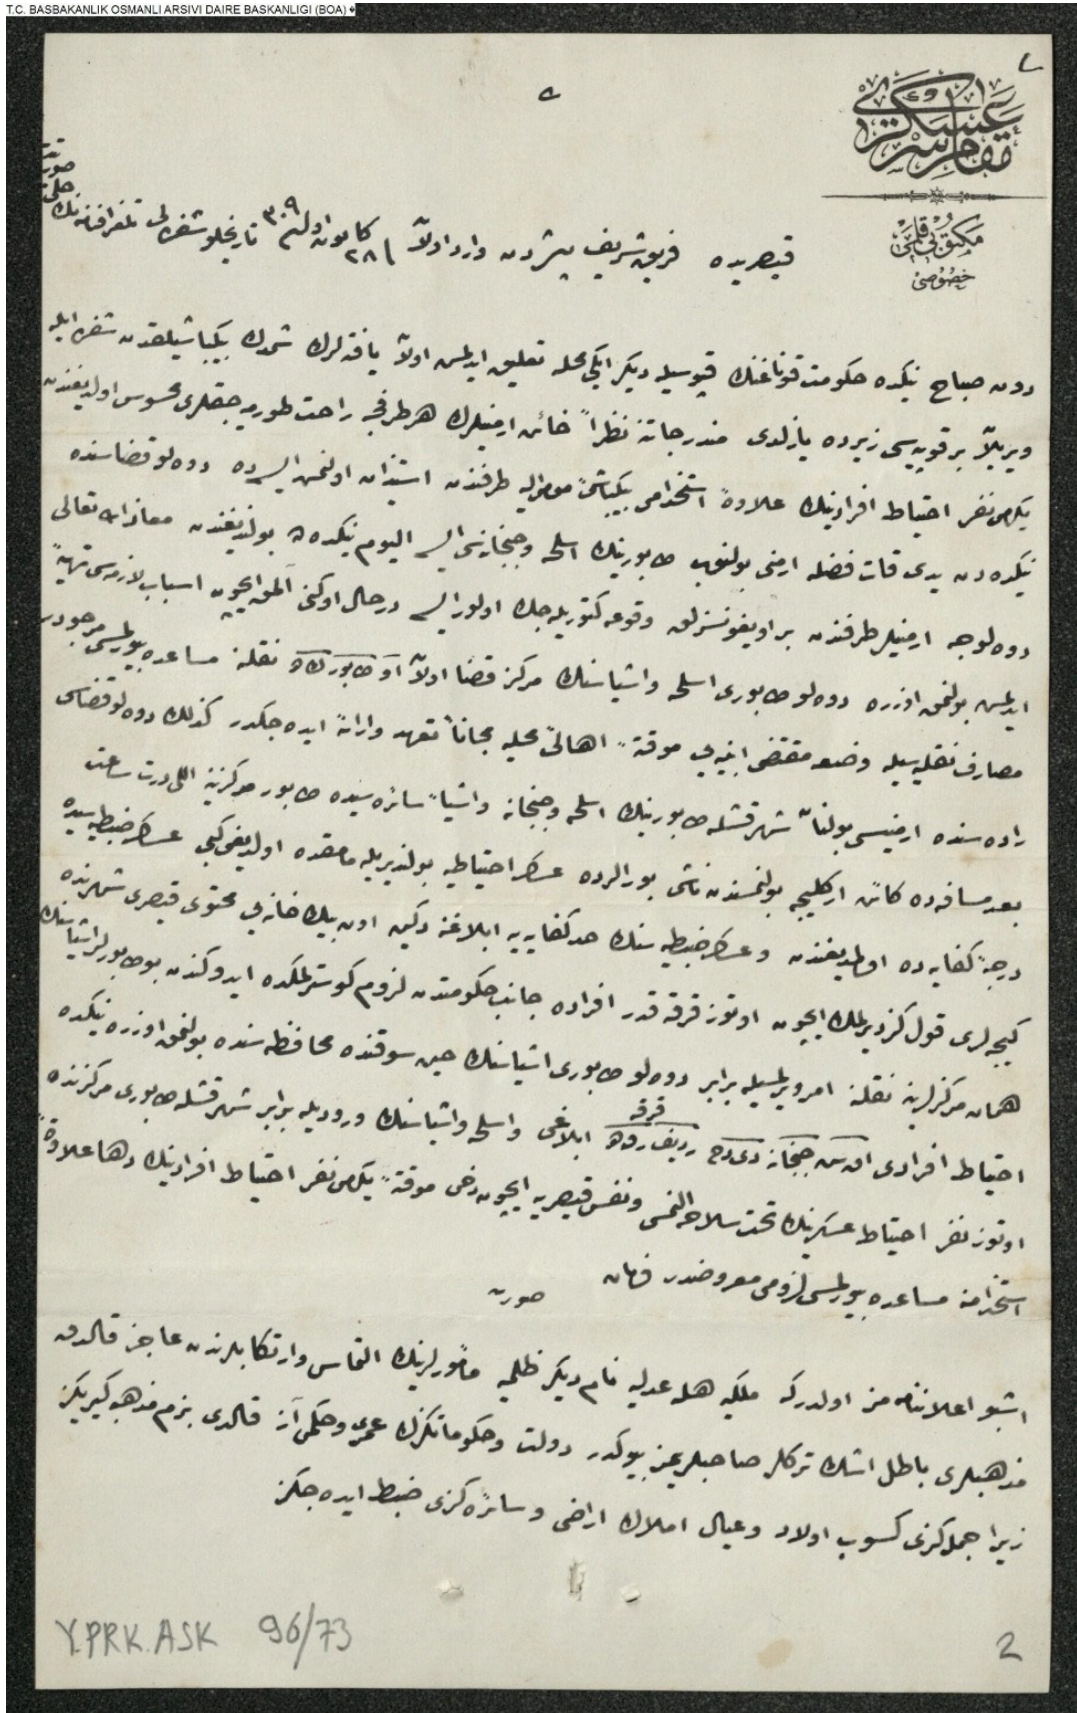 T.C. BASBAKANLIK OSMANLI ARSIVI DAIRE BASKANLIGI (BOA)
مقام سر عسكرى
مكتوبى قلمى
خصوصى
قيصريده فريق شريف پاشادن وارد اولان ٢٨ كانون اول ٣٠٩ تاريخلو شفره لى تلغرافنامه نك حلى صورتيدر
دون صباح نيكده حكومت قوناغنك قپوسيله ديكر ايكى محله تعليق ايدلمش اولان يافته لرك شمدى بيكباشيلقدن شفره ايله
ويريلان بر قوپيه سى زيرده يازلدى مندرجاتنه نظراً خائن ارمنيلرك هر طرفجه راحت طورميه جقلرى محسوس اولديغندن
يكرمى نفر احتياط افرادينك علاوةً استخدامى بيكباشئ مومى اليه طرفندن استيذان اولنمش ايسه ده دوه لو قضاسنده
نيكده دن يدى قات فضله ارمنى بولنوب طابورينك اسلحه و جبخانه سى ايسه اليوم نيكده ده بولنديغندن معاذ الله تعالى
دوه لوجه ارمنيلر طرفندن بر اويغونسزلق وقوعه كتوريله جك اولور ايسه درحال اوكنى آلمق ايچون اسباب لازمه سى تهيه
ايدلمش بولنمق اوزره دوه لو طابورى اسلحه و اشياسنك مركز قضا اولان نقلنه مساعده بيورلمسى مرجودر
مصارف نقليه سيله وضعه مقتضى ابنيه يى موقةً اهالئ محليه مجاناً تعهد و ارائه ايده جكدر كذلك دوه لو قضاسى
راده سنده ارمنيسى بولنان شهر قشله طابورينك اسلحه و جبخانه و اشياء سائره سيده طابور مركزينه اللى درت ساعت
بعد مسافه ده كائن اركليجه بولنمسندن ناشى بورالرده عسكر احتياطيه بولنديريله مامقده اولديغى كبى عسكر ضبطيه سيده
درجۀ كفايه ده اولمديغندن و عسكر ضبطيه سنك حد كفايه يه ابلاغنه دكين اون بيك خانه يى محتوى قيصرى شهرنده
كيجه لرى قول كزديرلمك ايچون اوتوز قرقه قدر افراده جانب حكومتدن لزوم كوسترلمكده ايدوكندن بو طابورلر اشياسنك
همان مركزلرينه نقلنه امر ويرلمسيله برابر دوه لو طابورى اشياسنك حين سوقنده محافظه سنده بولنمق اوزره نيكده
احتياط افرادى جبخانه رديف فرقه ابلاغى و اسلحه و اشياسنك وروديله برابر شهر قشله طابورى مركزنده
اوتوز نفر احتياط عسكرينك تحت سلاحه النمسى و نفس قيصريه ايچون دخى موقةً يكرمى نفر احتياط افرادينك دها علاوةً
استخدامنه مساعده بيورلمسى لزومى معروضدر فرمان
صورت
اشبو اعلاننامه مز اولدركه ملكيه هله عدليه نام ديكر ظلميه مأمورلرينك التماس و ارتكابلرندن عاجز قالدق
مذهبلرى باطل اشك تركلر صاحبلريمز بيوكدر دولت و حكوماتكزك عمرى و حكمى آز قالدى بزم مذهبه كيريكز
زيرا جمله كزى كسوب اولاد و عيال املاك اراضى و سائره كزى ضبط ايده جكز
Y.PRK.ASK 96/73
2